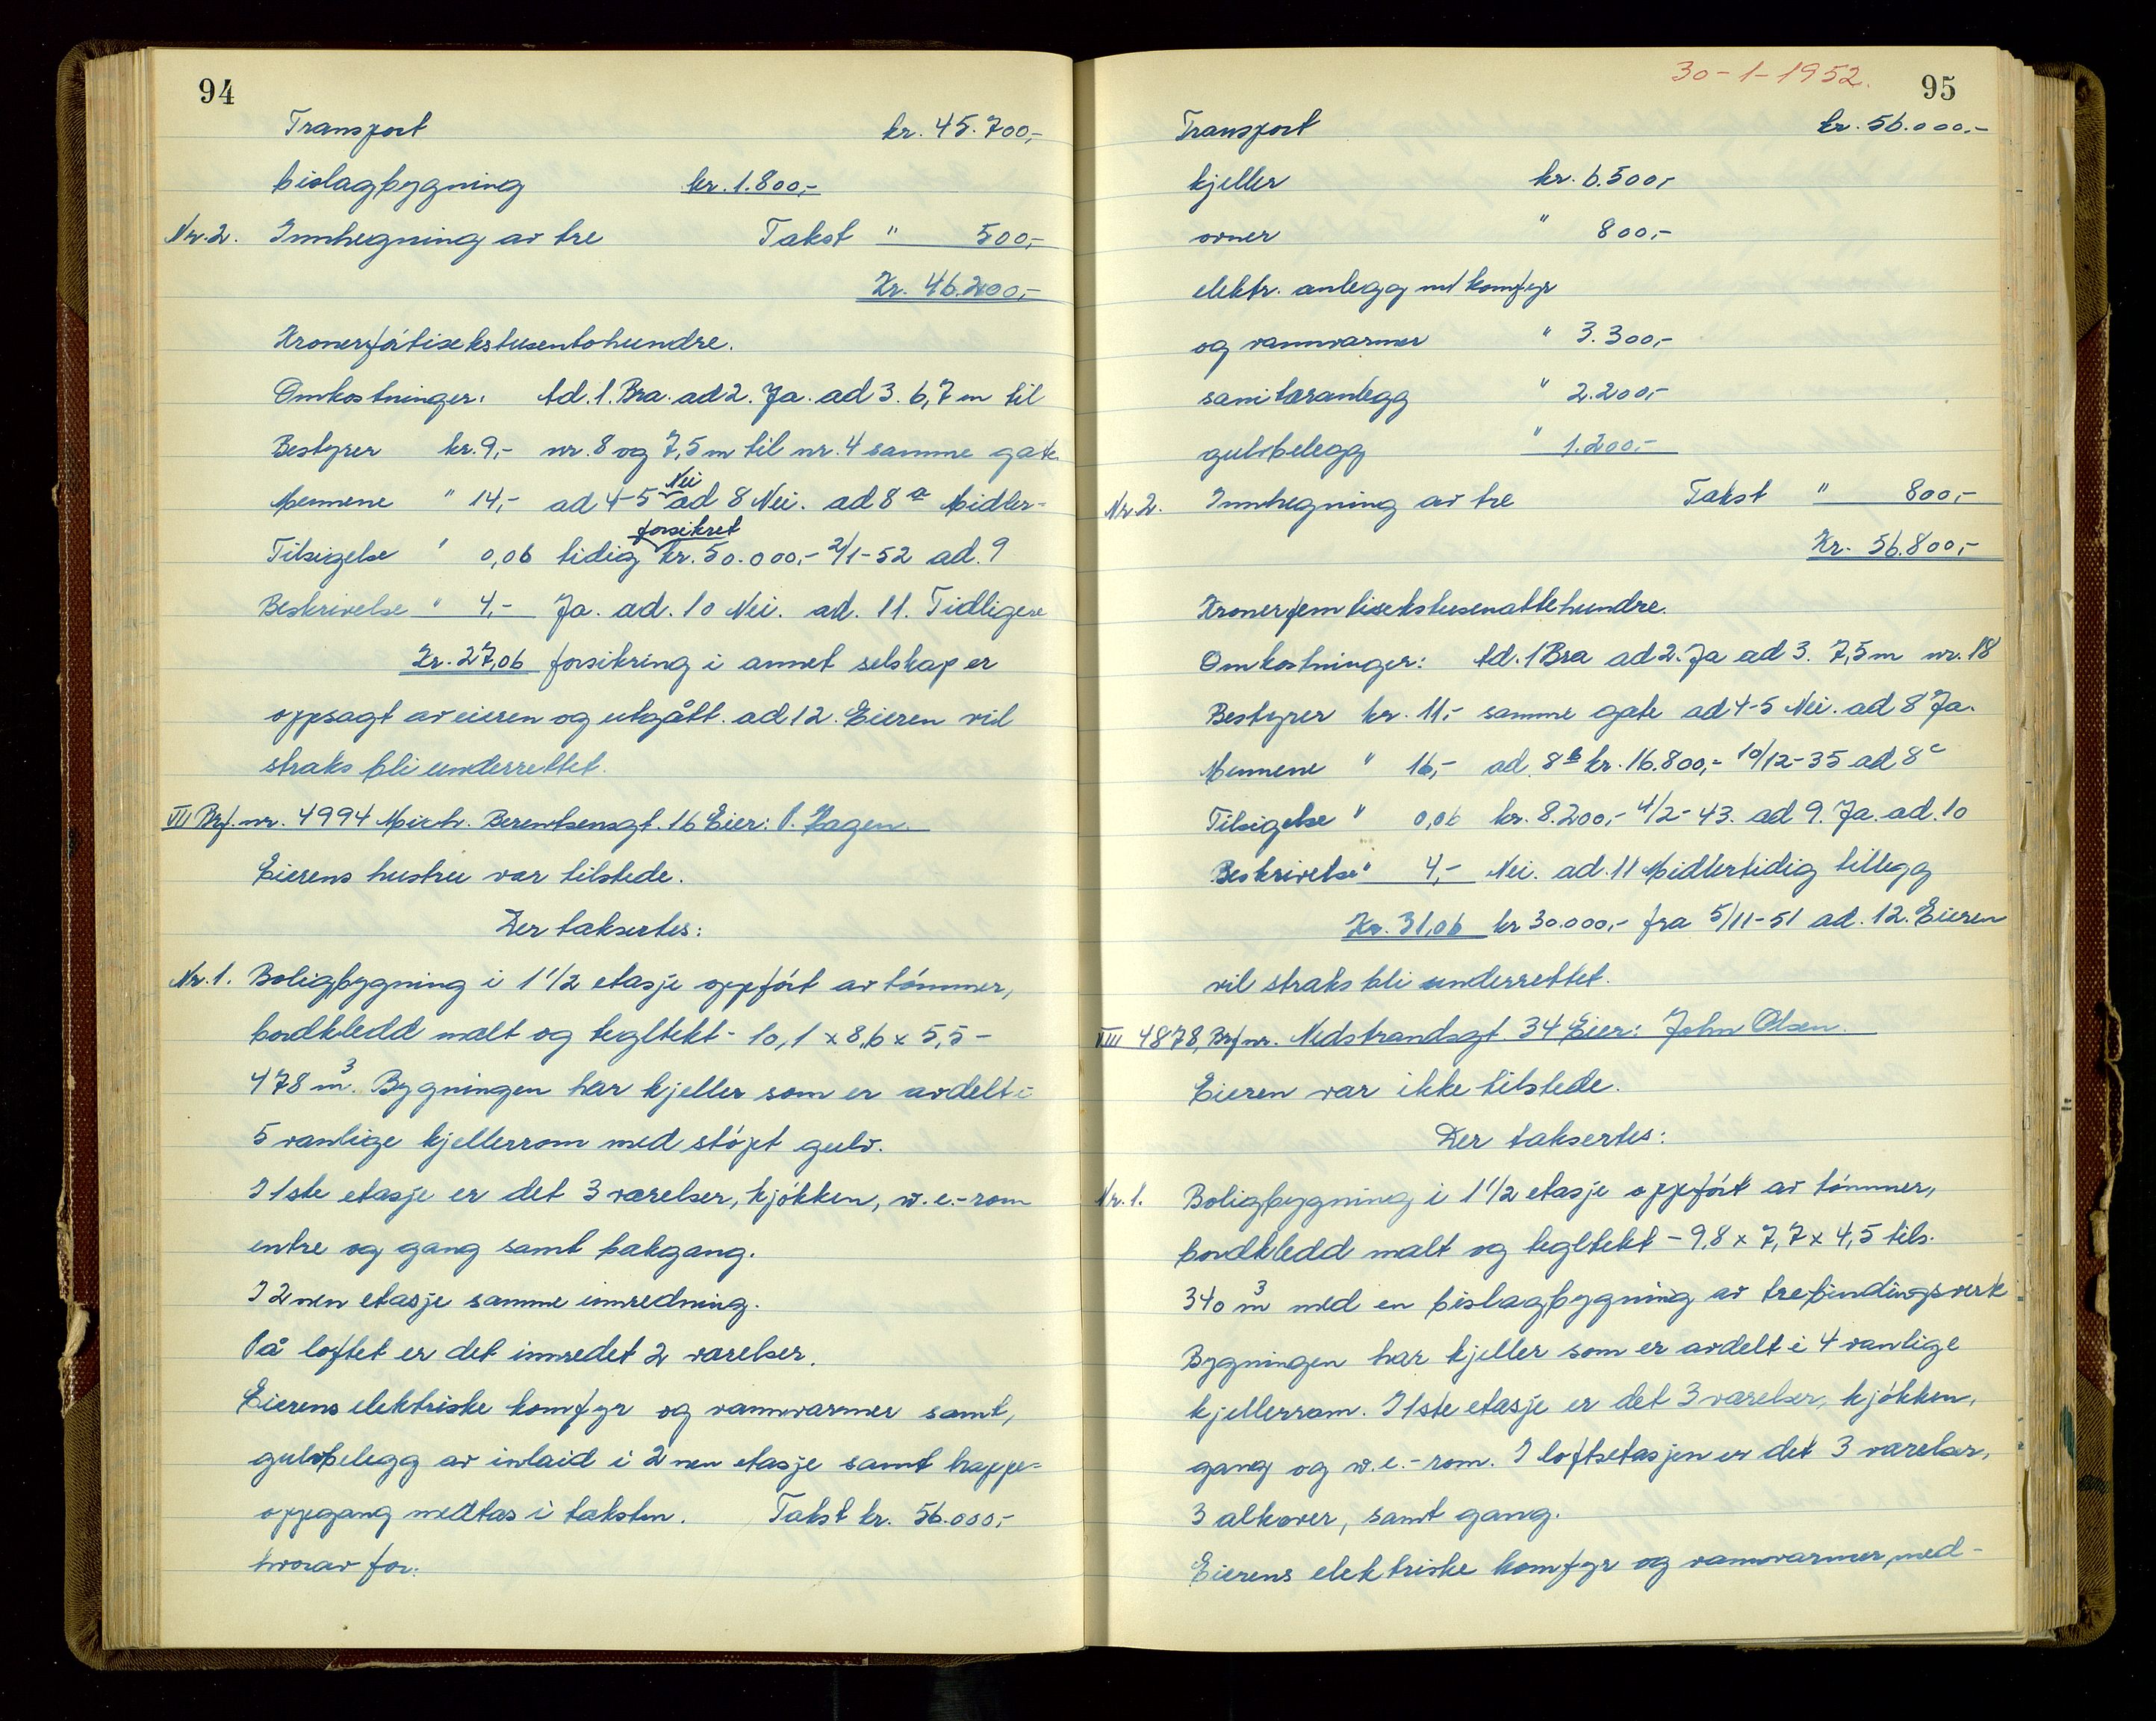 94
Transport kr. 45.700,-
bislagbygning kr. 1.800,-
Nr. 2. Innhegning av tre Takst " 500,-
Kr. 46.200,-
Kronerførtisekstusentohundre.
Omkostninger: Ad. 1. Bra. ad 2. Ja. ad 3. 6,7 m til
Bestyrer kr. 9,- nr. 8 og 7,5 m til nr. 4 samme gate.
Mennene " 14,- ad 4-5 Nei ad 8 Nei. ad 8 a Midler-
Tilsigelse " 0,06 tidig forsikret kr. 50.000,- 2/1-52 ad. 9
Beskrivelse " 4,- Ja. ad. 10 Nei. ad. 11. Tidligere
Kr. 27,06 forsikring i annet selskap er
oppsagt av eieren og utgått. ad 12. Eieren vil
straks bli underrettet.
VII Brf. nr. 4994 Mich. Berentsensgt. 16 Eier: P. Hagen.
Eierens hustru var tilstede.
Der taksertes:
Nr. 1. Boligbygning i 1 1/2 etasje oppført av tømmer,
bordkledd malt og tegltekt - 10,1 x 8,6 x 5,5 -
478 m3. Bygningen har kjeller som er avdelt i
5 vanlige kjellerrom med støpt gulv.
I 1ste etasje er det 3 værelser, kjøkken, w.c.-rom
entre og gang samt bakgang.
I 2nen etasje samme innredning.
På loftet er det innredet 2 værelser.
Eierens elektriske komfyr og vannvarmer samt,
gulvbelegg av inlaid i 2nen etasje samt trappe-
oppgang medtas i taksten. Takst kr. 56.000,-
hvorav for:
30-1-1952.
95
Transport kr. 56.000,-
kjeller kr. 6.500,-
ovner " 800,-
elektr. anlegg m/ komfyr
og vannvarmer " 3.300,-
sanitæranlegg " 2.200,-
gulvbelegg " 1.200,-
Nr. 2. Innhegning av tre Takst " 800,-
Kr. 56.800,-
Kronerfemtisekstusenåttehundre.
Omkostninger: Ad. 1 Bra ad 2. Ja ad 3. 7,5 m nr. 18
Bestyrer kr. 11,- samme gate ad 4-5 Nei. ad 8 Ja.
Mennene " 16,- ad. 8 b kr. 16.800,- 10/12-35 ad 8 c
Tilsigelse " 0,06 kr. 8.200,- 4/2-43. ad 9. Ja. ad. 10
Beskrivelse " 4,- Nei. ad. 11 Midlertidig tillegg
Kr. 31,06 kr 30.000,- fra 5/11-51 ad. 12. Eieren
vil straks bli underrettet.
VIII 4878, Brf nr. Nedstrandsgt. 34 Eier: John Olsen.
Eieren var ikke tilstede.
Der taksertes:
Nr. 1. Boligbygning i 1 1/2 etasje oppført av tømmer,
bordkledd malt og tegltekt - 9,8 x 7,7 x 4,5 tils.
340 m3 med en bislagbygning av trebindingsverk
Bygningen har kjeller som er avdelt i 4 vanlige
kjellerrom. I 1ste etasje er det 3 værelser, kjøkken,
gang og w.c.-rom. I loftsetasjen er det 3 værelser,
3 alkover, samt gang.
Eierens elektriske komfyr og vannvarmer, med-